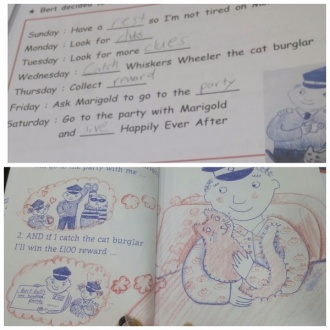 ★ Bert decided
Sunday : Have a rest so I'm not tired on
Monday : Look for clus
Tuesday : Look for more clues
Wednesday : Catch Whiskers Wheeler the cat burglar
Thursday : Collect reward
Friday : Ask Marigold to go to the party
Saturday : Go to the party with Marigold
and live Happily Ever After
party with me
2. AND if I catch the cat burglar
I'll win the £100 reward